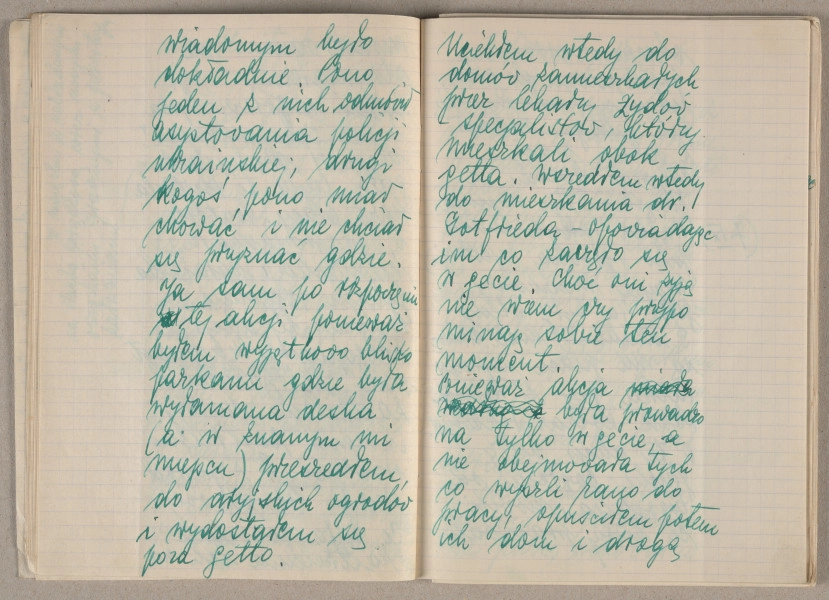 wiadomym było
dokładnie. Pono
jeden z nich odmówił
asystowania policji
ukraińskiej, drugi
kogoś pono miał
chować i nie chciał
się przyznać gdzie.
Ja sam po rozpoczęciu
tej akcji ponieważ
byłem wyjątkowo blisko
parkanu gdzie była
wyłamana deska
(a w znanym mi
miejscu) przeszedłem
do aryjskich ogrodów
i wydostałem się
poza getto.
Uciekłem wtedy do
domów zamieszkałych
przez lekarzy Żydów
specjalistów, którzy
mieszkali obok
getta. Wszedłem wtedy
do mieszkania dr.
Gotfrieda – opowiadając
im co zaczęło się
w gecie. Choć oni żyją
nie wiem czy przypo
minają sobie ten
moment.
Ponieważ akcja
była prowadzo
na tylko w gecie, a
nie obejmowała tych
co wyszli rano do
pracy, opuściłem potem
ich dom i drogą